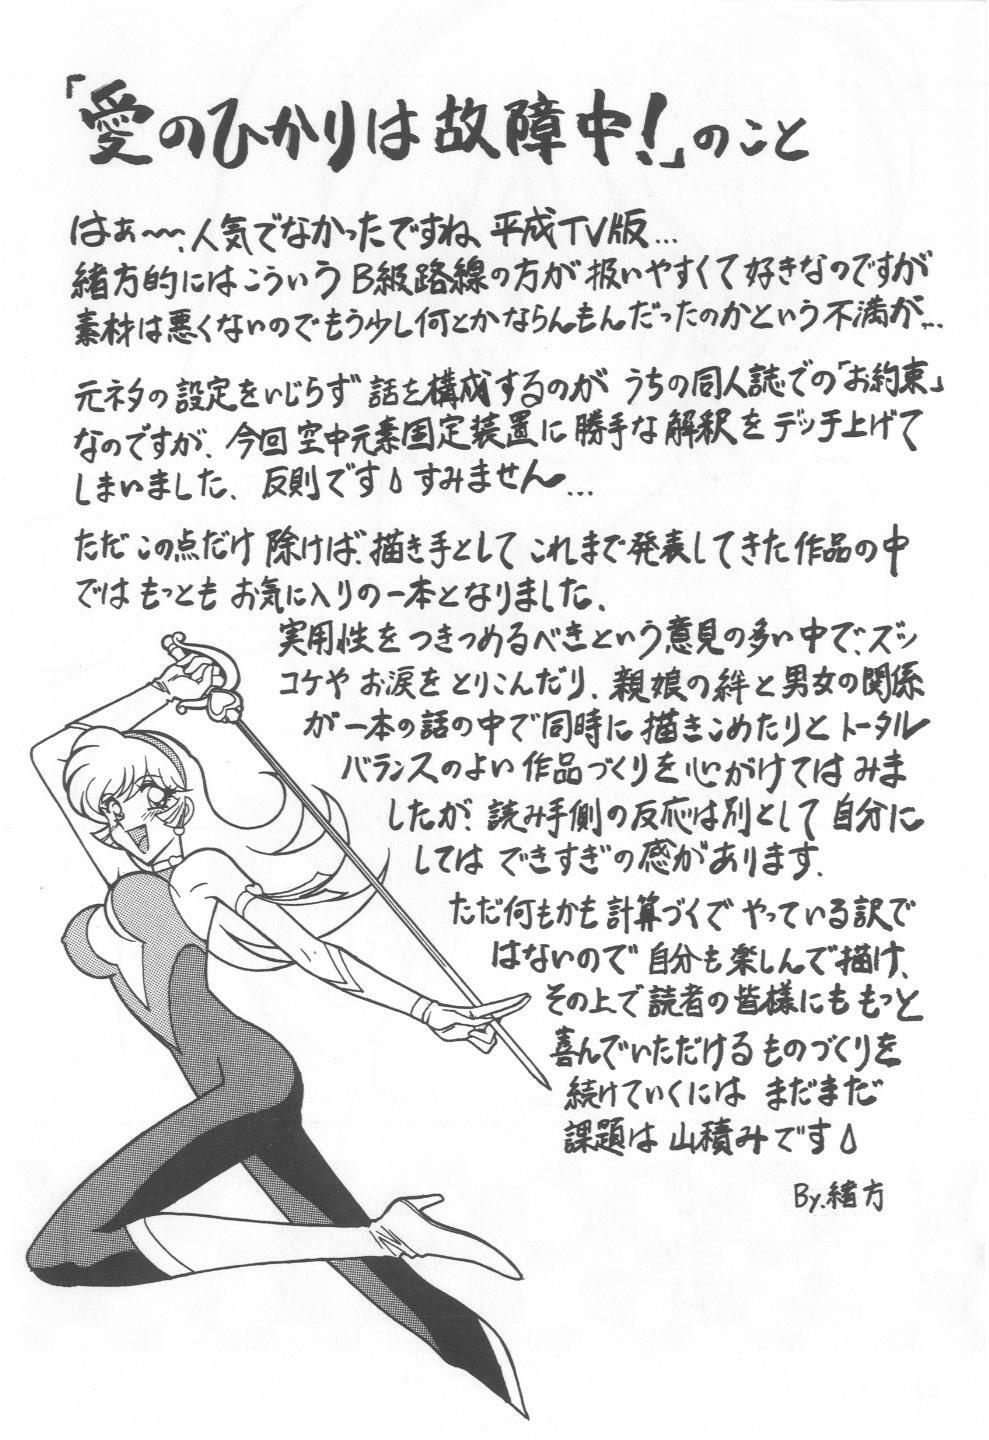 「愛のひかりは故障中!」のこと
はぁ〜〜、人気でなかったですね、平成TV版...
緒方的にはこういうB級路線の方が扱いやすくて好きなのですが
素材は悪くないのでもう少し何とかならんもんだったのかという不満が...
元ネタの設定をいじらず話を構成するのがうちの同人誌での「お約束」
なのですが、今回空中元素固定装置に勝手な解釈をデッチ上げて
しまいました、反則です すみません...
ただこの点だけ除けば、描き手としてこれまで発表してきた作品の中
ではもっともお気に入りの一本となりました、
実用性をつきつめるべきという意見の多い中で、ズッ
コケやお涙をとりこんだり、親娘の絆と男女の関係
が一本の話の中で同時に描きこめたりとトータル
バランスのよい作品づくりを心がけてはみま
したが、読み手側の反応は別として自分に
してはできすぎの感があります、
ただ何もかも計算づくでやっている訳で
はないので自分も楽しんで描け、
その上で読者の皆様にももっと
喜んでいただけるものづくりを
続けていくにはまだまだ
課題は山積みです
By.緒方